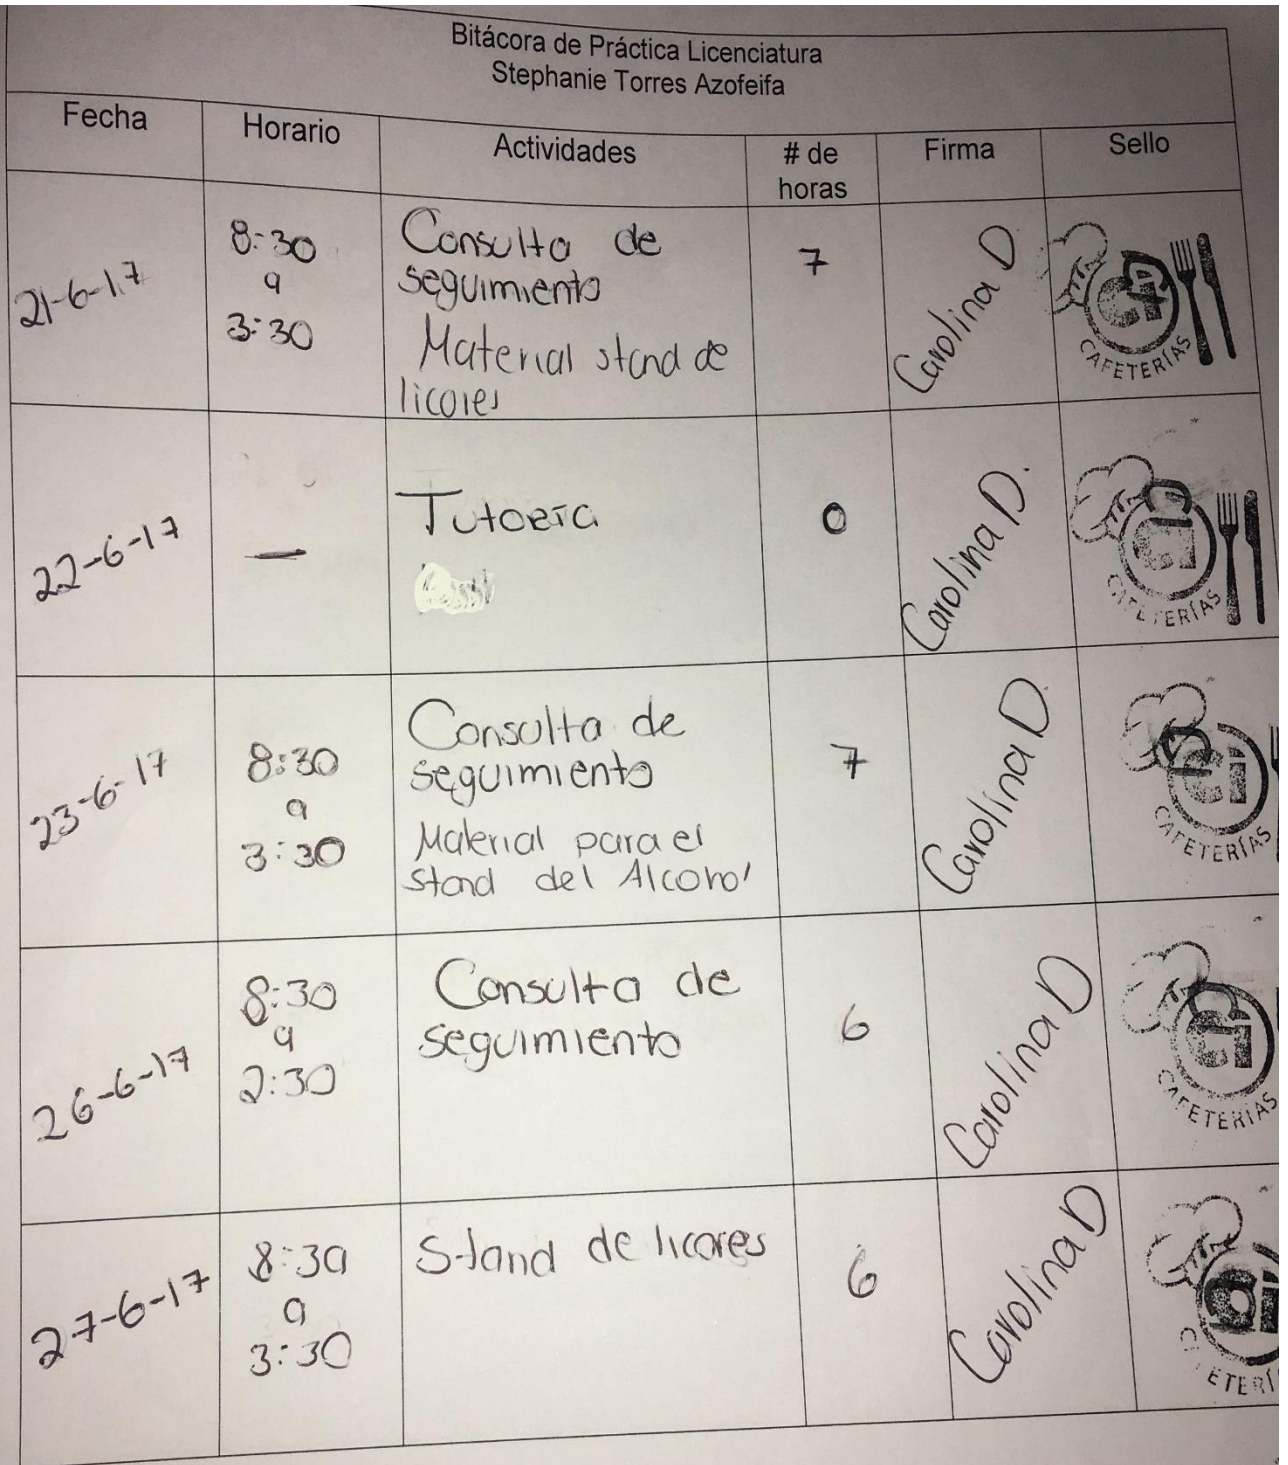 Bitácora de Práctica Licenciatura
Stephanie Torres Azofeifa
Fecha Horario Actividades # de horas Firma Sello
21-6-17
8:30
a
3:30
Consulta de
seguimiento
Material stand de
licores
7
Carolina D
CAFETERÍAS
22-6-17
—
Tutoría
0
Carolina D.
Ci
CAFETERÍAS
23-6-17
8:30
a
3:30
Consulta de
seguimiento
Material para el
stand del Alcohol
7
Carolina D.
Ci
CAFETERÍAS
26-6-17
8:30
a
2:30
Consulta de
seguimiento
6
Carolina D
Ci
CAFETERÍAS
27-6-17
8:30
a
3:30
Stand de licores
6
Carolina D
ETERÍ